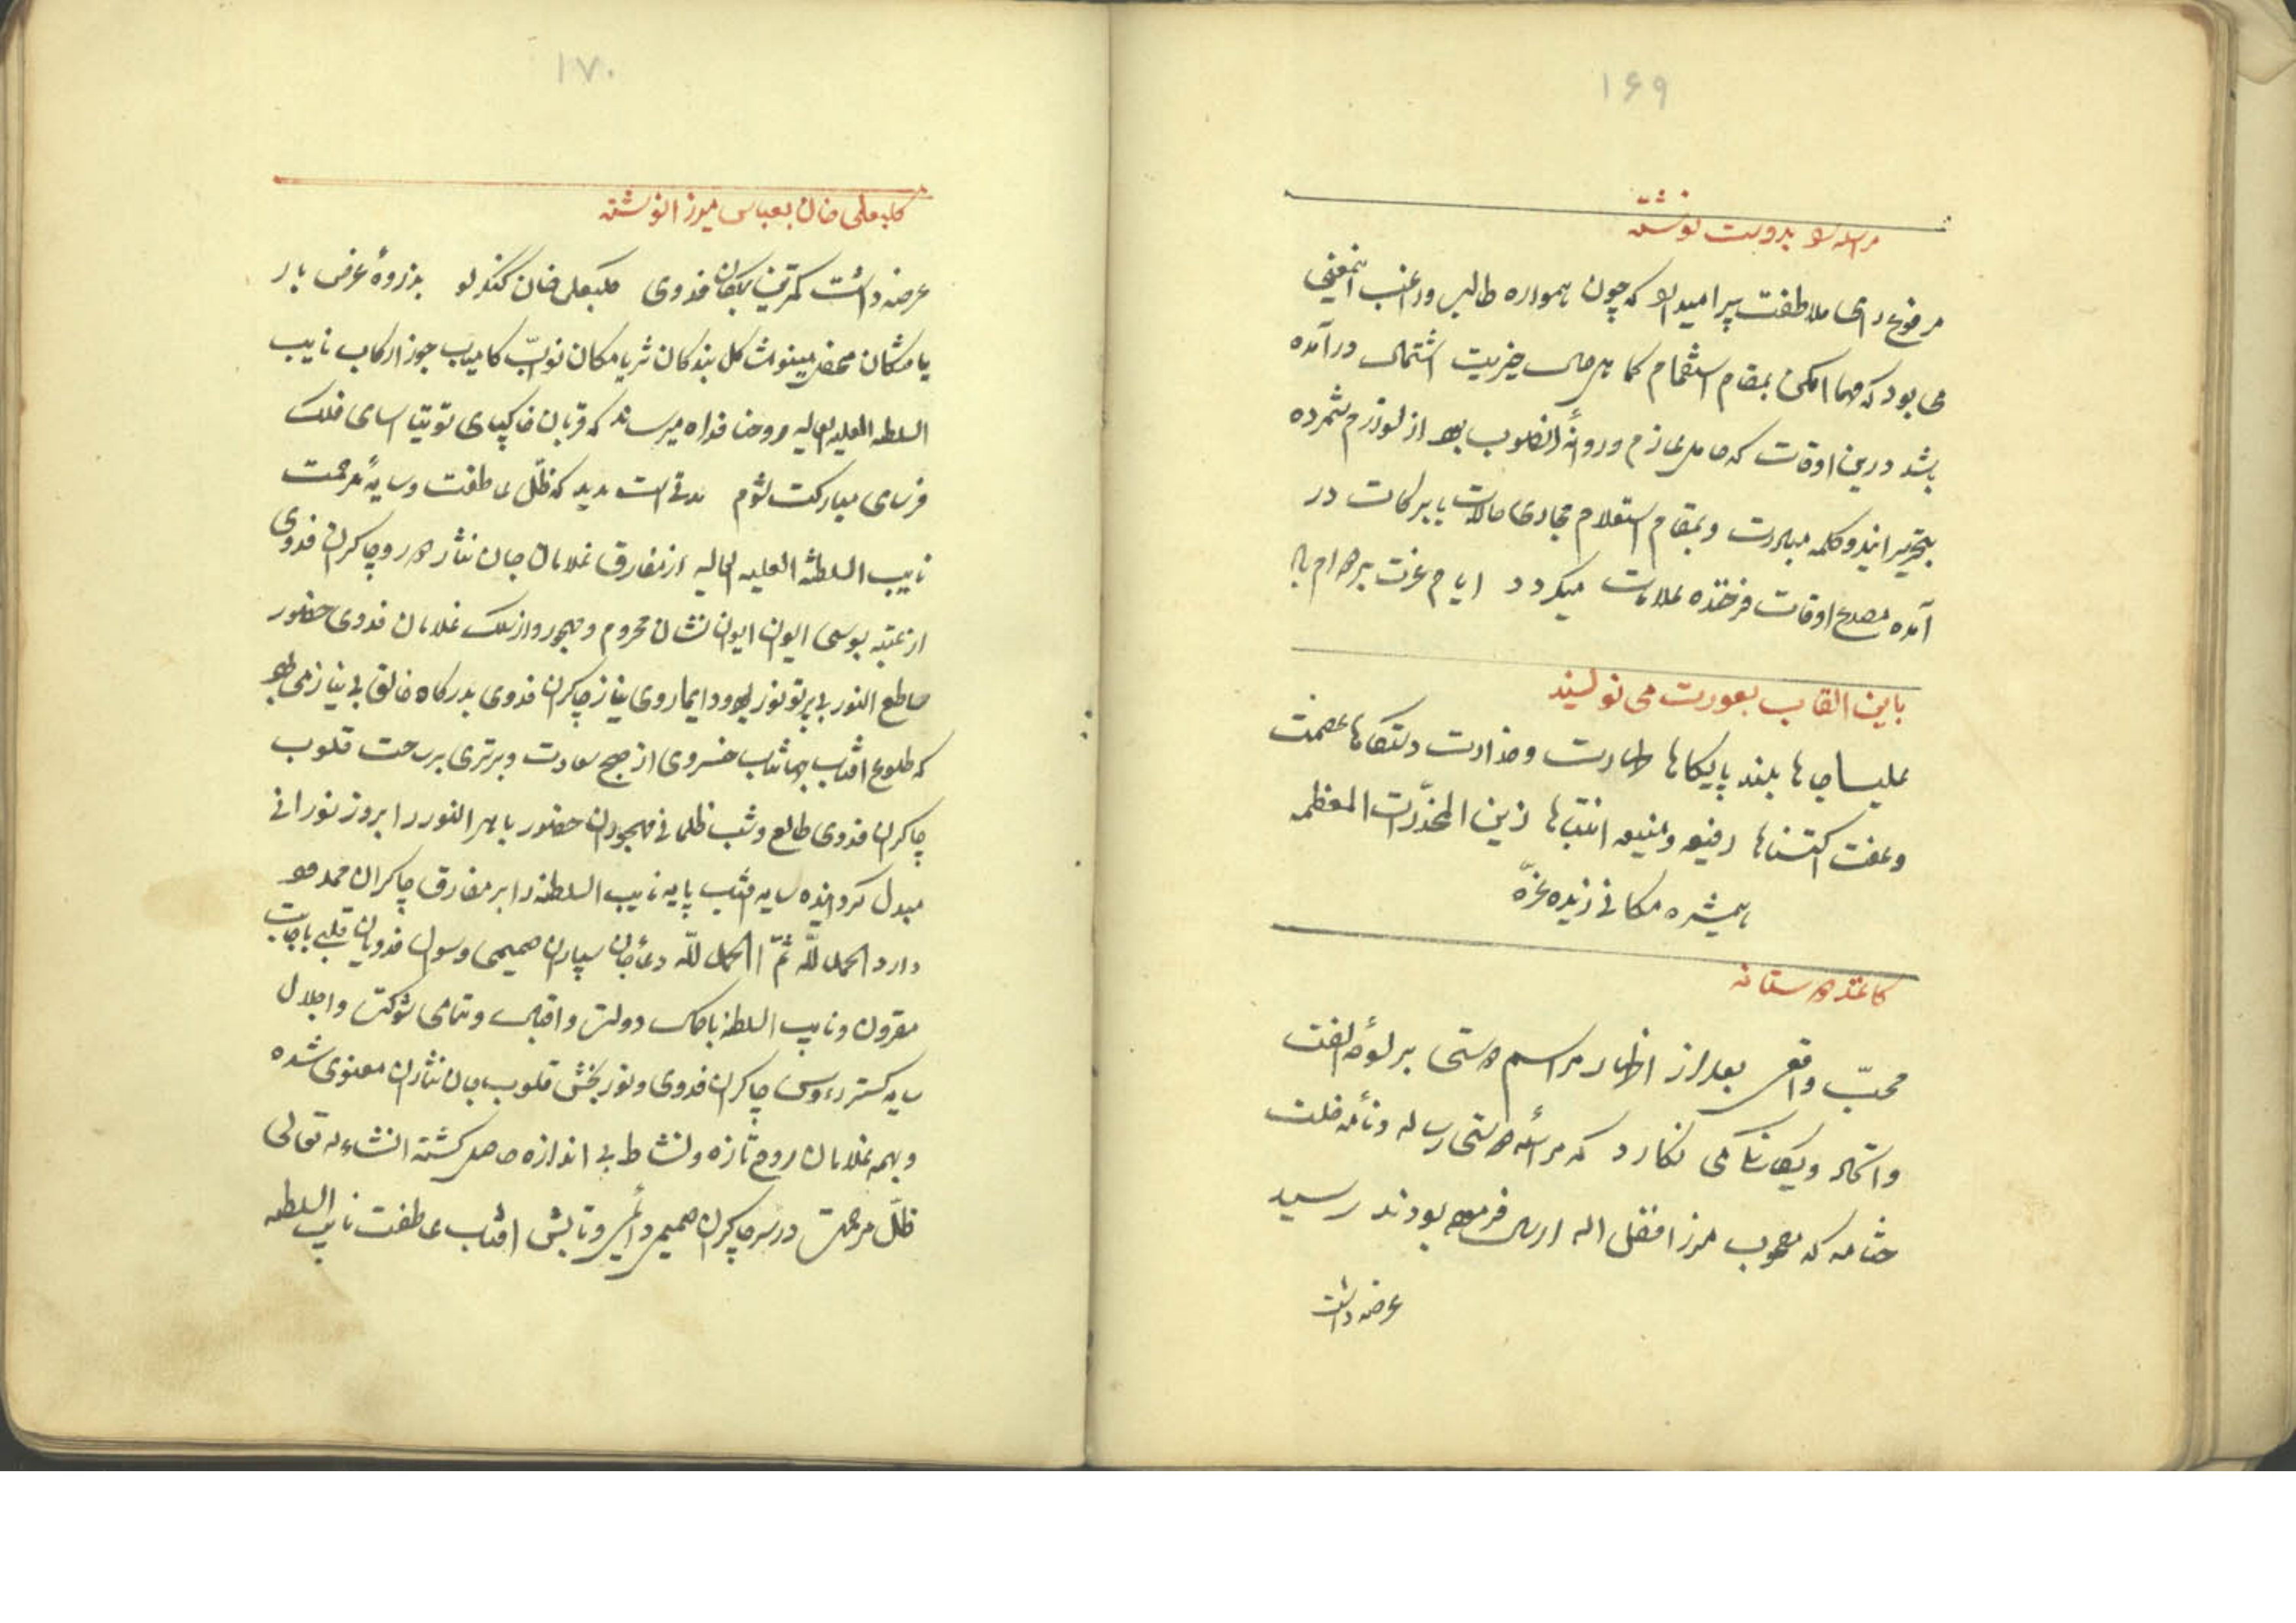 ۱۶۹
مراسله بدوست نوشته
مرفوع رای ملاطفت پیرا میدارد که چون همواره طالب و راغب اینمعنی
می بود که مهما امکن بمقام استفهام کماهی حال خیریت اشتمال درآمده
باشد درین اوقات که حامل عازم و روانهٔ انصوب بود از لوازم شمرده
بتحریر این دو کلمه مبادرت و بمقام استعلام مجاری حالات با برکات در
آمده مصدع اوقات فرخنده علامات میگردد ایام عزت بر دوام باد
باین القاب بعورت می نویسند
علیا جاها بلند پایگاها طهارت و خدارت دستگاها عصمت
و عفت اکتناها رفیعه و منیعه انتسابها زین المخدّرات المعظمه
همشیره مکانی زیده عزّه
کاغذ دوستانه
محبّ واقعی بعد از اظهار مراسم دوستی بر لوحه الفت
و اتحاد و یگانگی می نگارد که مراسله دوستی رساله و نامه خلت
ختامه که مصحوب میرزا فضل اله ارسال فرموده بودند رسید
عرضه داشت
۱۷۰
کلبعلی خان بعباس میرزا نوشته
عرضه داشت کمترین بندکان فدوی کلبعلی خان کنکرلو بذروهٔ عرض بار
یافتکان محفل مینو مشاکل بندکان ثریا مکان نوّاب کامیاب جوزا رکاب نایب
السلطه العلیه العالیه روحنا فداه میرساند که قربان خاکپای توتیا اسای فلک
فرسای مبارکت شوم مدتی است مدید که ظلّ عاطفت و سایهٔ مرحمت
نایب السلطنه العلیه العالیه از مفارق غلامان جان نثار دور و چاکران فدوی
از عتبه بوسی ایوان ایوان نشان محروم و مهجور و از سلک غلامان فدوی حضور
ساطع النور بی پرتو نور بوده و دایما روی نیاز چاکران فدوی بدرکاه خالق بی نیاز می بود
که طلوع افتاب جهانتاب خسروی از صبح سعادت و برتری بر ساحت قلوب
چاکران فدوی طالع و شب ظلمانی مهجوران حضور باهر النور را بروز نورانی
مبدل کردانیده سایه افتاب پایه نایب السلطنه را بر مفارق چاکران ممدود
دارد الحمد للّه ثمّ الحمد للّه دعای جان سپاران صمیمی و سول فدویان قلبی باجابت
مقرون و نایب السلطنه باکمال دولت و اقبال و تمامی شوکت و اجلال
سایه کستر رءوس چاکران فدوی و نور بخش قلوب جان نثاران معنوی شده
و بهمه غلامان روح تازه و نشاط بی اندازه حاصل کشته انشاءاله تعالی
ظلّ مرحمت در سر چاکران صمیمی دائمی و تابش افتاب عاطفت نایب السلطه